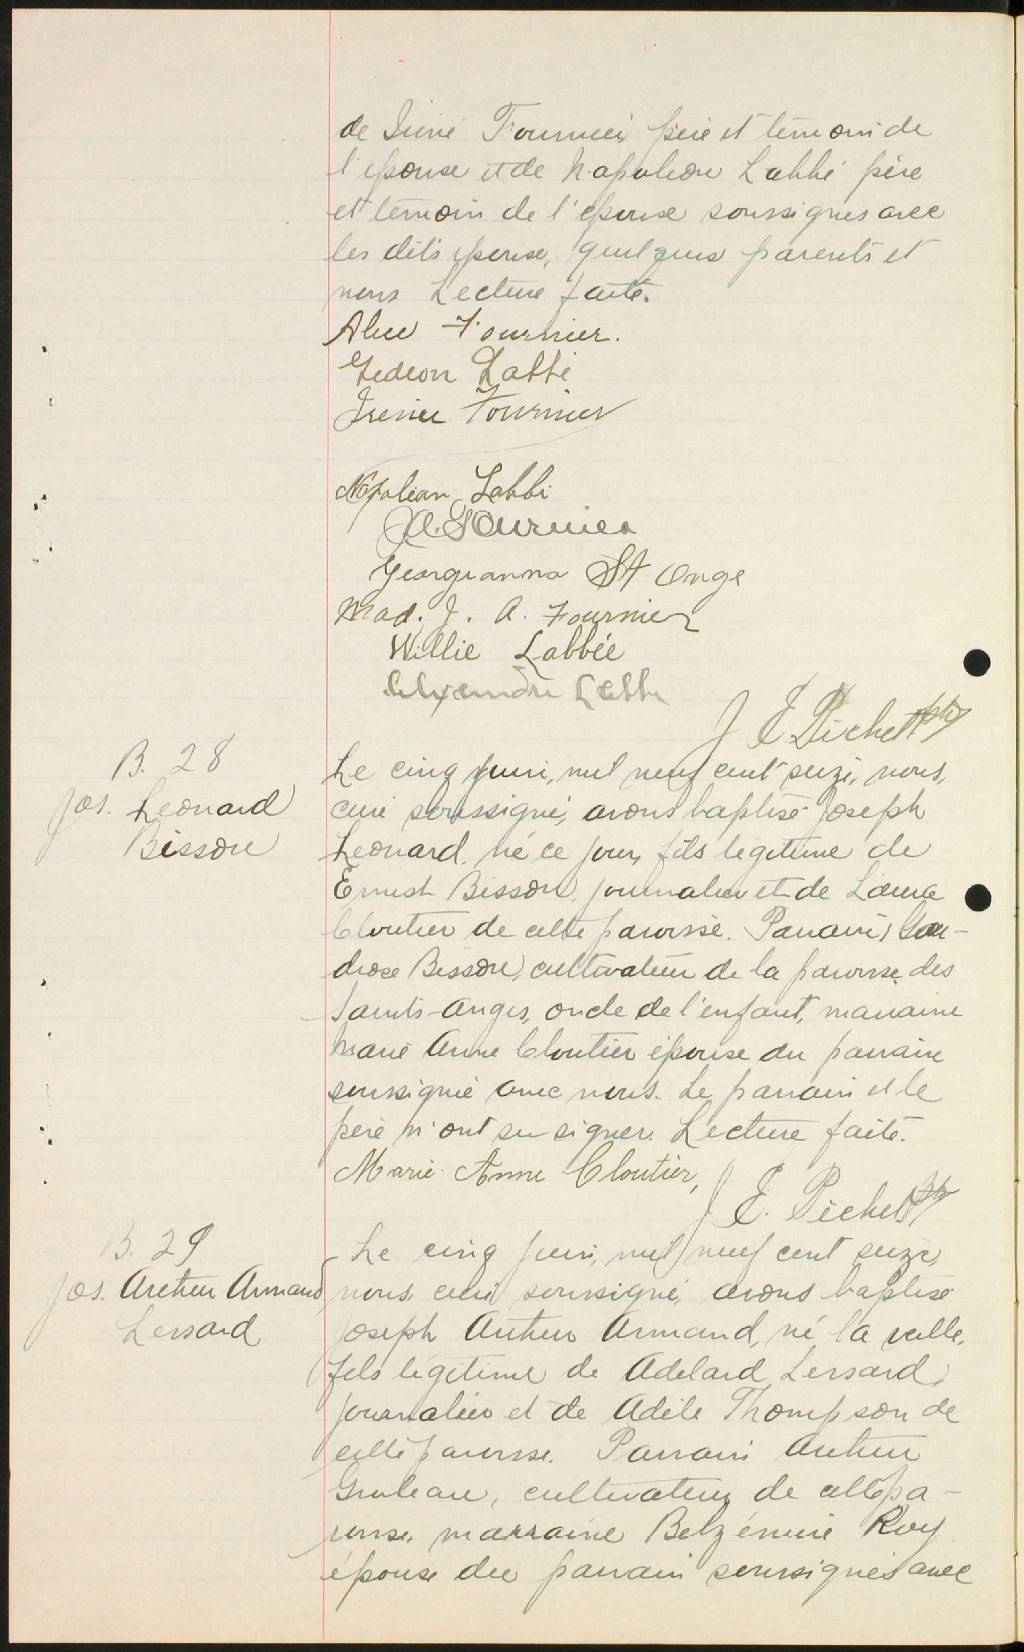 de Iréné Fournier père et témoin de
l'épouse et de Napoléon Labbé père
et témoin de l'épouse soussignés avec
les dits épouse, quelques parents et
nous Lecture faite.
Alice Fournier.
Gedeon Labbé
Irenee Fournier
Napolean Labbi
A. Fournier
Georgeanna St Onge
Mad. J. A. Fournier
Willie Labbée
Alexandre Labbe
J E Pichett ptr
B. 28
Jos. Leonard
Bisson
Le cinq juin, mil neuf cent seize, nous,
curé soussigné, avons baptisé Joseph
Leonard, né ce jour, fils légitime de
Ernest Bisson, journalier et de Laura
Cloutier de cette paroisse. Parrain, Gau-
diose Bisson, cultivateur de la paroisse des
Saints-Anges, oncle de l'enfant, marraine
Marie Anne Cloutier épouse du parrain
soussignée avec nous. Le parrain et le
père n'ont su signer. Lecture faite.
Marie-Anne Cloutier,
J. E. Pichett ptr
B. 29
Jos. Arthur Armand
Lessard
Le cinq juin, mil neuf cent seize,
nous, curé soussigné, avons baptisé
Joseph Arthur Armand, né la veille,
fils légitime de Adelard Lessard,
journalier et de Adèle Thompson de
cette paroisse. Parrain Arthur
Groleau, cultivateur de cette pa-
roisse, marraine Belzémire Roy
épouse du parrain soussignés avec